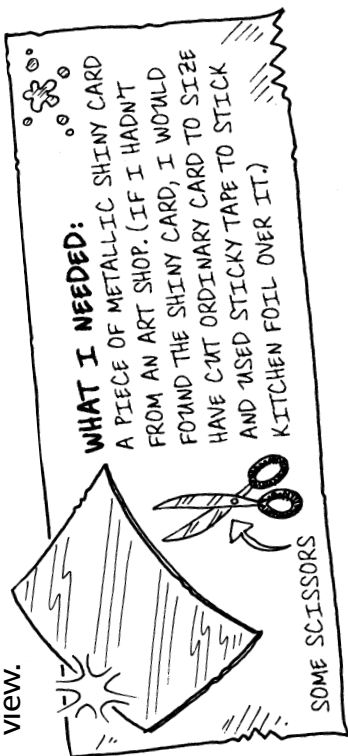 view.
WHAT I NEEDED:
A PIECE OF METALLIC SHINY CARD
FROM AN ART SHOP. (IF I HADN'T
FOUND THE SHINY CARD, I WOULD
HAVE CUT ORDINARY CARD TO SIZE
AND USED STICKY TAPE TO STICK
KITCHEN FOIL OVER IT.)
SOME SCISSORS